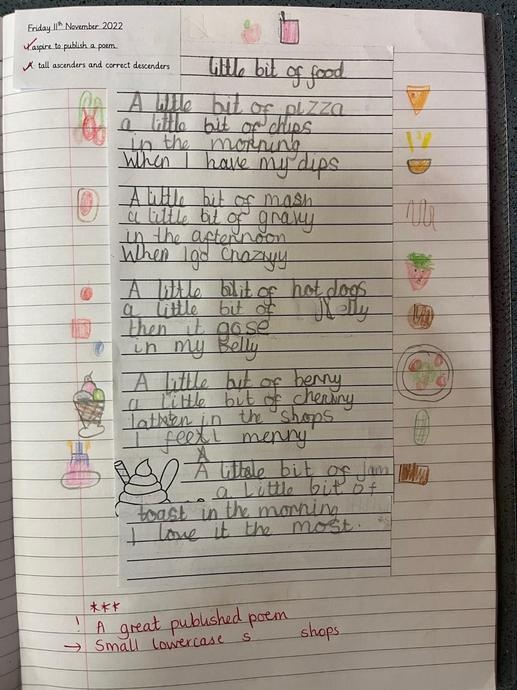 Friday 11th November 2022
aspire to publish a poem.
tall ascenders and correct descenders
little bit of food
A little bit of pizza
a little bit of chips
in the morning
When I have my dips
A little bit of mash
a little bit of gravy
in the afternoon
When I go Crazyy
A little bit of hot dogs
a little bit of Jelly
then it gose
in my Belly
A little bit of berry
a little bit of cherry
in the shops
I feel merry
A little bit of jam
a little bit of
toast in the morning
I love it the most.
***
! A great published poem
→ Small lowercase s shops